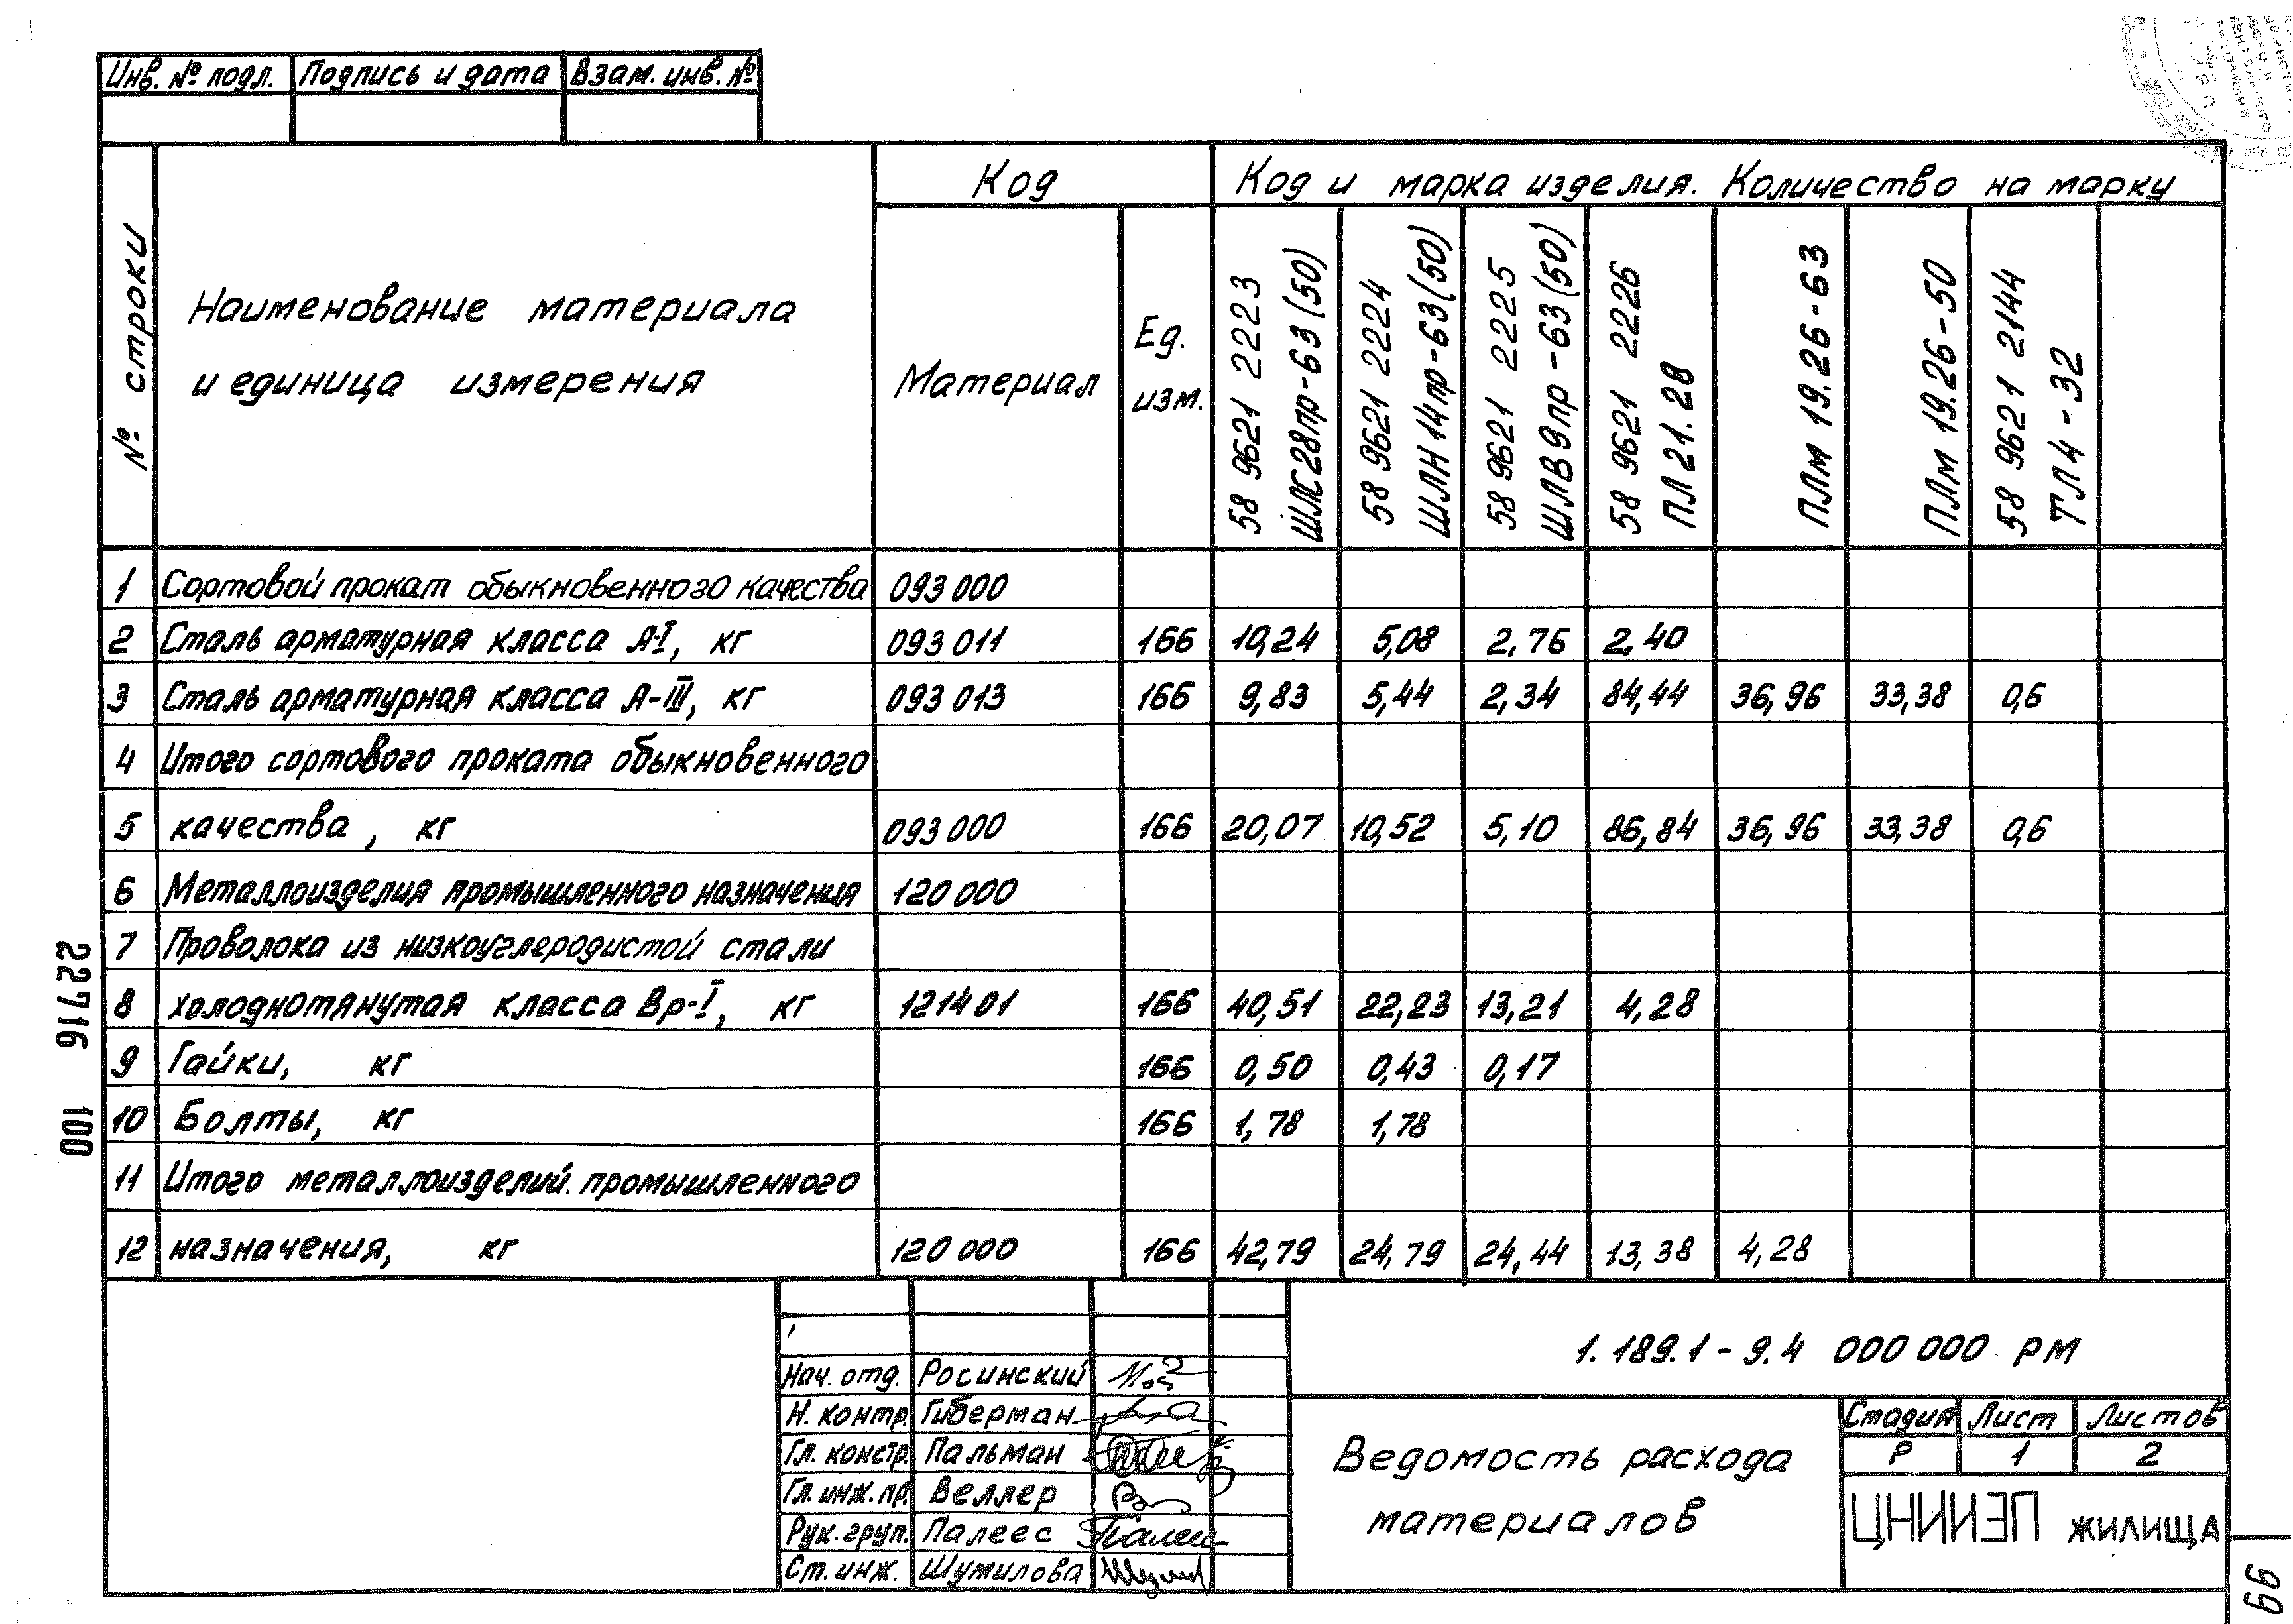 Инв. № подл. Подпись и дата Взам. инв. №
№ строки
Наименование материала
и единица измерения
Код
Материал
Ед.
изм.
Код и марка изделия. Количество на марку
58 9621 2223
ШЛС28пр-63(50)
58 9621 2224
ШЛН14пр-63(50)
58 9621 2225
ШЛВ9пр-63(50)
58 9621 2226
ПЛ21.28
ПЛм 19.26-63
ПЛм 19.26-50
58 9621 2144
ТЛ4-32
1 Сортовой прокат обыкновенного качества 093 000
2 Сталь арматурная класса А-I, кг 093 011 166 10,24 5,08 2,76 2,40
3 Сталь арматурная класса А-III, кг 093 013 166 9,83 5,44 2,34 84,44 36,96 33,38 0,6
4 Итого сортового проката обыкновенного
5 качества, кг 093 000 166 20,07 10,52 5,10 86,84 36,96 33,38 0,6
6 Металлоизделия промышленного назначения 120 000
7 Проволока из низкоуглеродистой стали
8 холоднотянутая класса Вр-I, кг 121401 166 40,51 22,23 13,21 4,28
9 Гайки, кг 166 0,50 0,43 0,17
10 Болты, кг 166 1,78 1,78
11 Итого металлоизделий промышленного
12 назначения, кг 120 000 166 42,79 24,79 24,44 13,38 4,28
22716 100
Нач. отд. Росинский
Н. контр. Гиберман
Гл. констр. Пальман
Гл. инж. пр. Веллер
Рук. груп. Палеес
Ст. инж. Шумилова
1.189.1-9.4 000 000 РМ
Ведомость расхода
материалов
Стадия Лист Листов
Р 1 2
ЦНИИЭП жилища
99